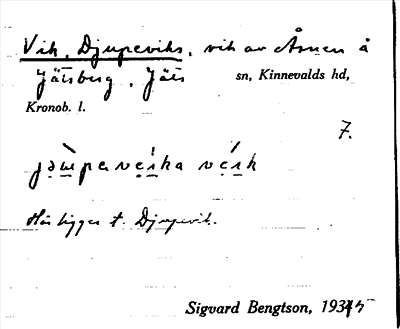 Vik, Djupeviks, vik av Åsnen å
Jätsberg, Jäts sn, Kinnevalds hd,
Kronob. l.
7.
Här ligger t. Djupevik.
Sigvard Bengtson, 1934